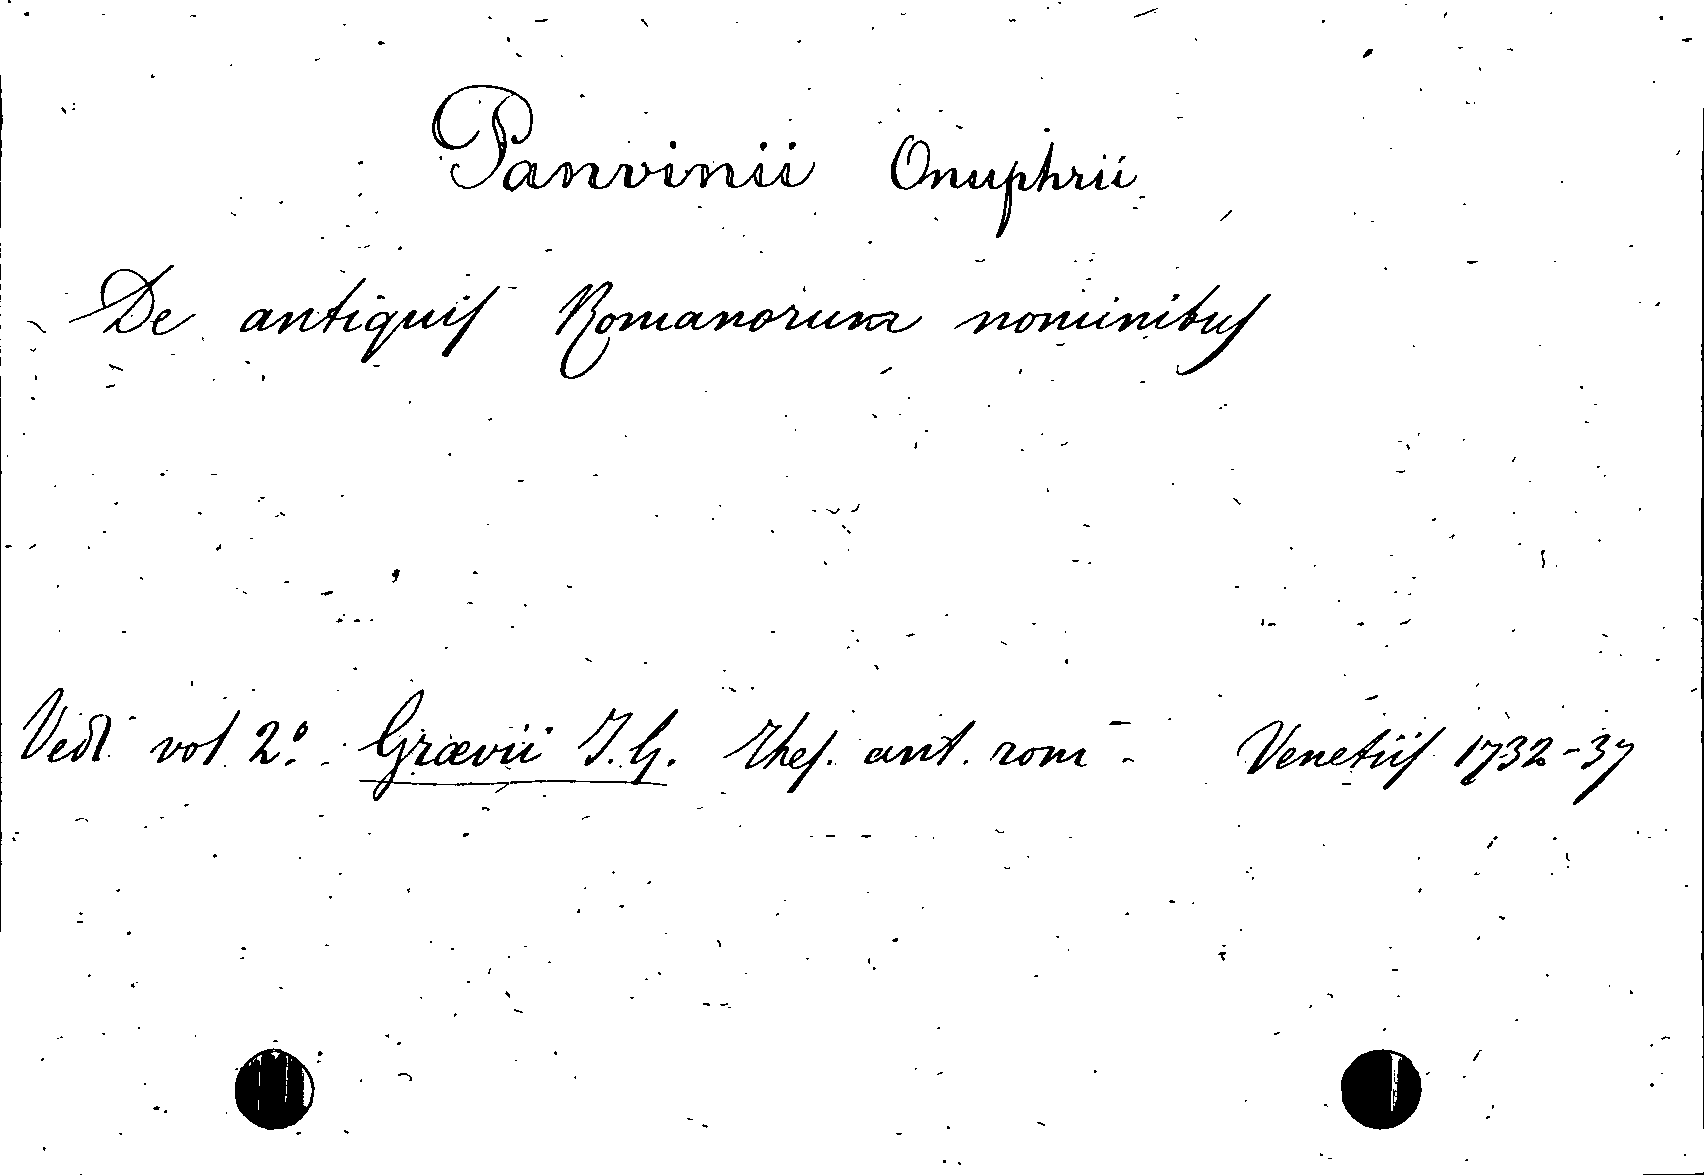 Panvinii Onuphrii
De antiquis Romanorum nominibus
Vedi vol. 2º. Grævii J. G. Thes. ant. rom - Venetiis 1732-37